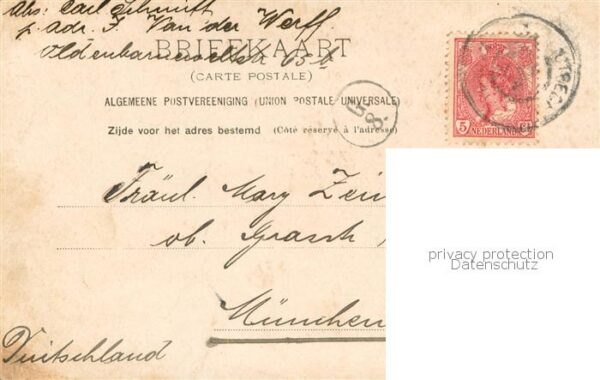 Abs: Carl Schmitt
p. adr. J. Van der Werff
Oldenbarneveltstr 65b
BRIEFKAART
(CARTE POSTALE)
ALGEMEENE POSTVEREENIGING (UNION POSTALE UNIVERSELLE)
Zijde voor het adres bestemd (Côté réservé à l'adresse)
58.
UTRECH
5 NEDERLAND
Fräul. Mary
ob.
München
Duitschland
privacy protection
Datenschutz